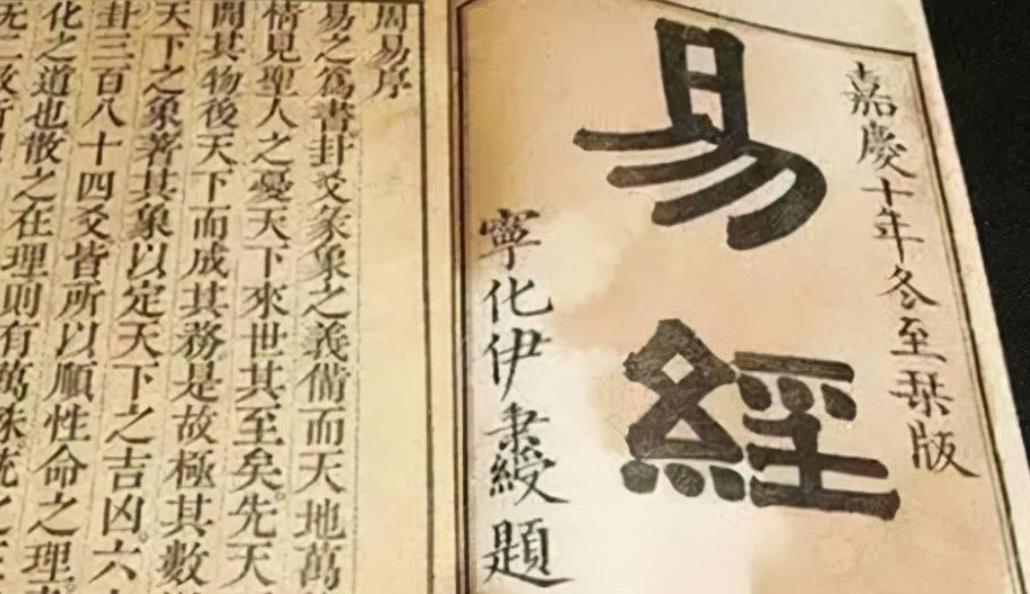 嘉慶十年冬至栞版
易經
寧化伊秉綬題
周易序
易之爲書卦爻彖象之義備而天地萬
情見聖人之憂天下來世其至矣。先天
開其物後天下而成其務是故極其數
天下之象著其象以定天下之吉凶。六
卦三百八十四爻皆所以順性命之理。
化之道也散之在理則有萬殊統之
无二致所